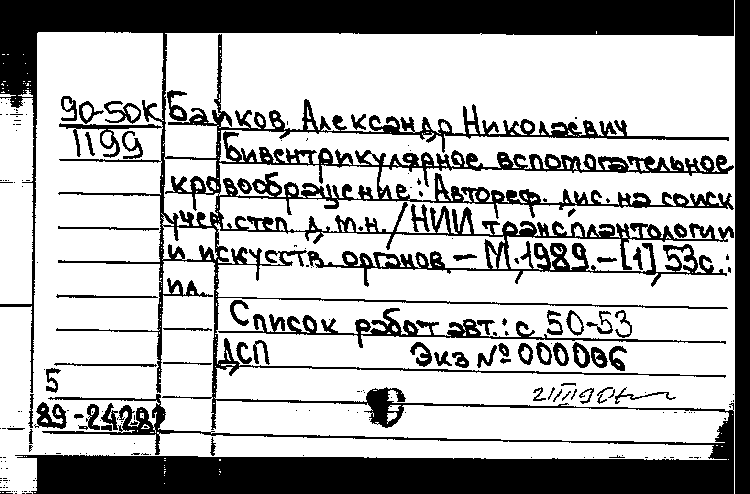 90-5DK Байков, Александр Николаевич
1199
Бивентрикулярное вспомогательное
кровообращение: Автореф. дис. на соиск
учен. степ. д. т. н. / НИИ трансплантологии
и искусств. органов. — М., 1989. — [1], 53 с.:
ил.
Список работ авт.: с. 50-53
ДСП Экз № 000006
5
89-24282